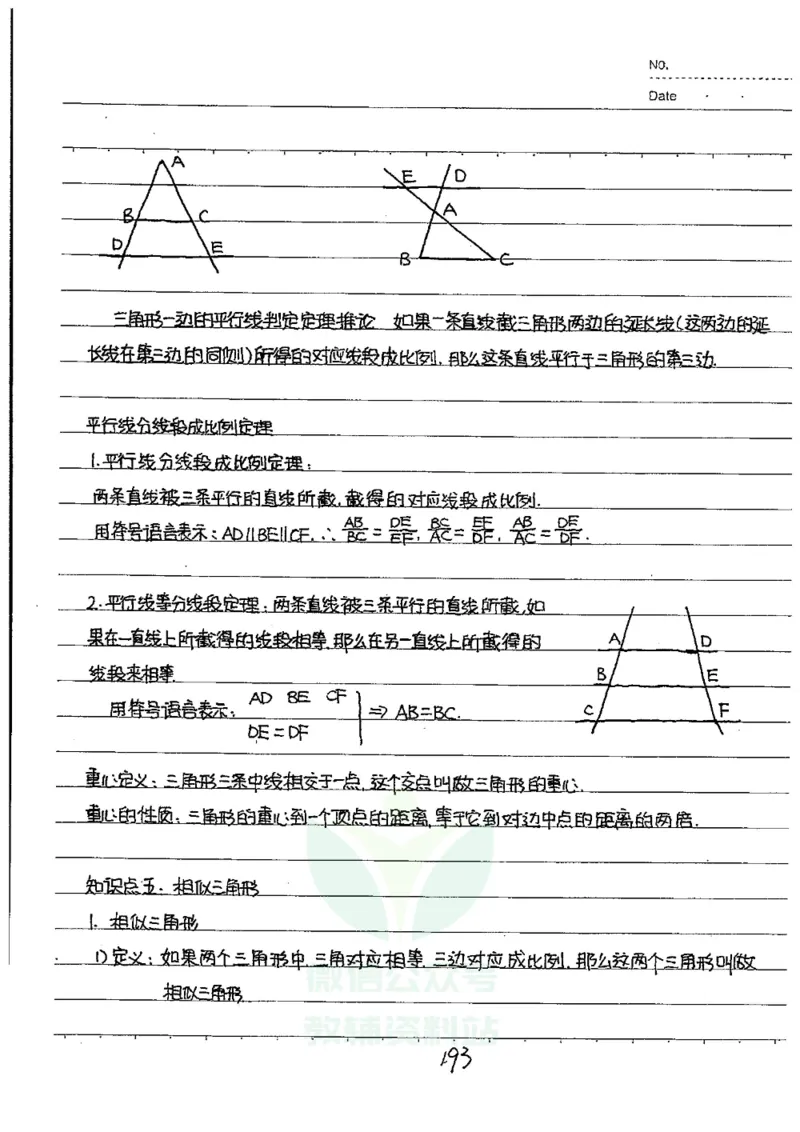 No.
Date
A
B C
D E
E D
A
B C
三角形一边的平行线判定定理推论 如果一条直线截三角形两边的延长线(这两边的延
长线在第三边的同侧)所得的对应线段成比例,那么这条直线平行于三角形的第三边.
平行线分线段成比例定理
1.平行线分线段成比例定理:
两条直线被三条平行的直线所截,截得的对应线段成比例.
用符号语言表示:AD∥BE∥CF,∴ AB/BC = DE/EF, BC/AC = EF/DF, AB/AC = DE/DF.
2.平行线等分线段定理:两条直线被三条平行的直线所截,如
果在一直线上所截得的线段相等,那么在另一直线上所截得的
线段来相等.
用符号语言表示: AD BE CF
DE=DF
⇒ AB=BC.
A D
B E
C F
重心定义:三角形三条中线相交于一点,这个交点叫做三角形的重心.
重心的性质:三角形的重心到一个顶点的距离,等于它到对边中点的距离的两倍.
知识点五:相似三角形
1. 相似三角形
1)定义:如果两个三角形中,三角对应相等,三边对应成比例,那么这两个三角形叫做
相似三角形.
微信公众号
教辅资料站
193